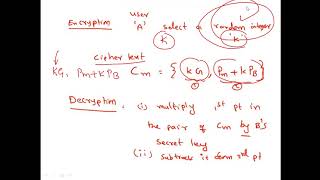 user
Encryption 'A' select a random integer
K 'k'
cipher text
KG, Pm+KPB Cm = { KG , Pm + KPB }
① ②
Decryption, (i) multiply 1st pt in
the pair of Cm by B's
secret key
(ii) subtract it from 2nd pt